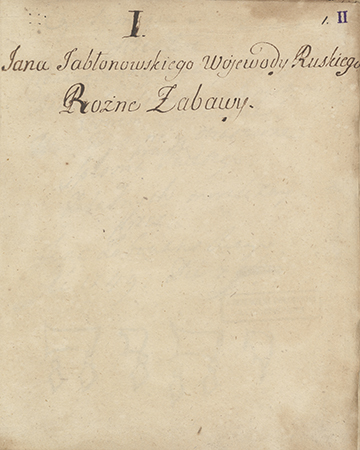 I.
1. II
Jana Jabłonowskiego Wojewody Ruskiego
Rożne Zabawy.